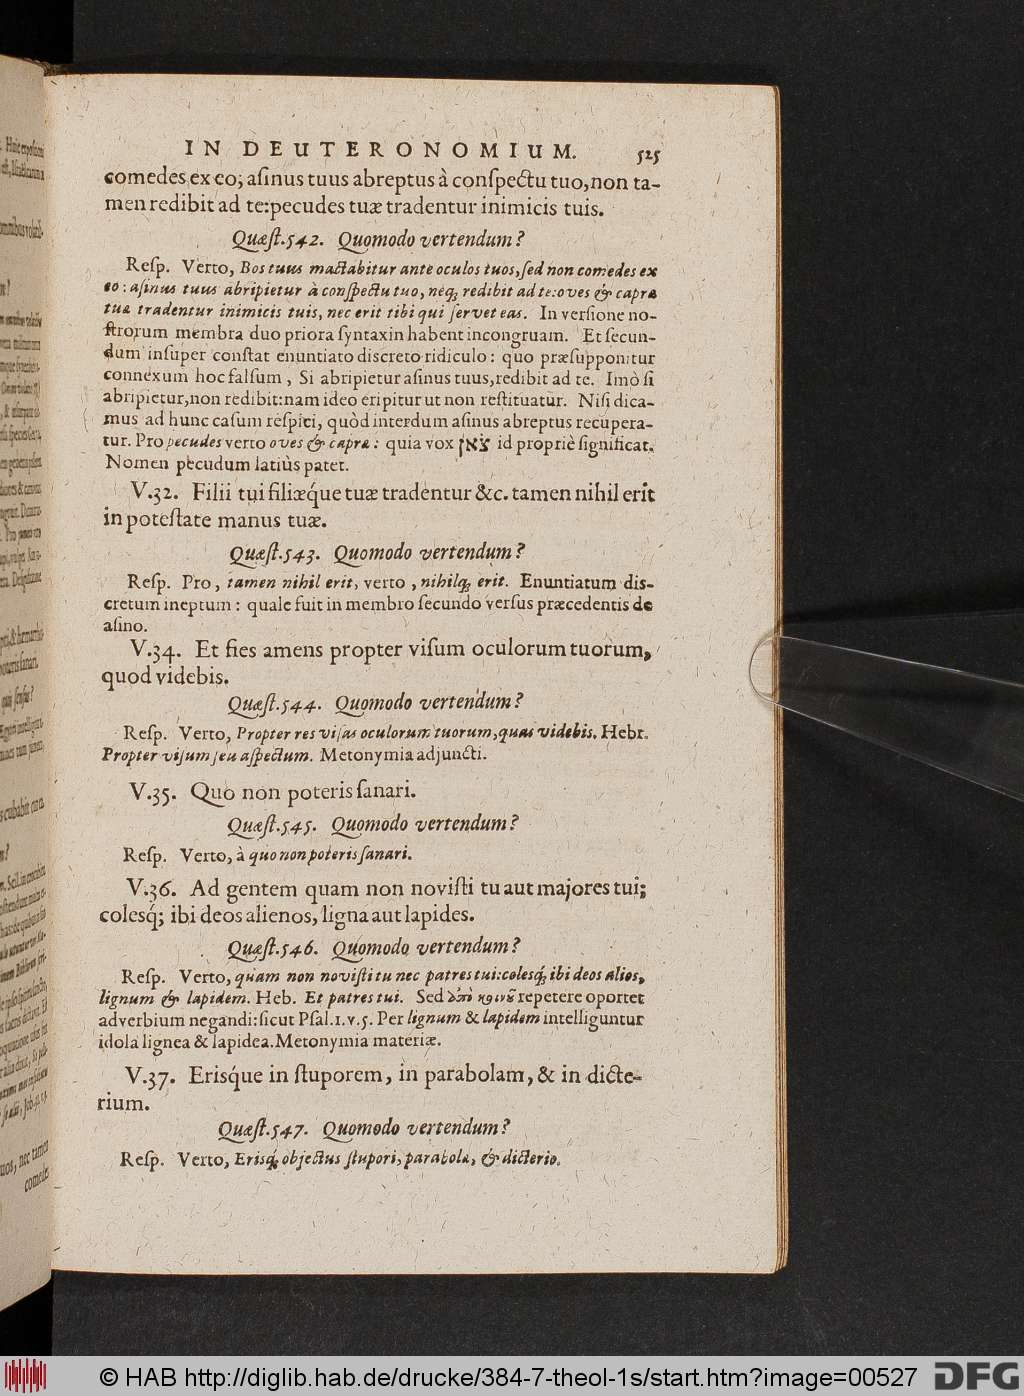 IN DEUTERONOMIUM. 525
comedes ex eo; aſinus tuus abreptus à conſpectu tuo, non ta-
men redibit ad te: pecudes tuæ tradentur inimicis tuis.
Quæſt. 542. Quomodo vertendum?
Reſp. Verto, Bos tuus mactabitur ante oculos tuos, ſed non comedes ex
eo: aſinus tuus abripietur à conſpectu tuo, neq; redibit ad te: oves & capræ
tuæ tradentur inimicis tuis, nec erit tibi qui ſervet eas. In verſione no-
ſtrorum membra duo priora ſyntaxin habent incongruam. Et ſecun-
dum inſuper conſtat enuntiato diſcreto ridiculo: quo præſupponitur
connexum hoc falſum, Si abripietur aſinus tuus, redibit ad te. Imò ſi
abripietur, non redibit: nam ideo eripitur ut non reſtituatur. Niſi dica-
mus ad hunc caſum reſpici, quòd interdum aſinus abreptus recupera-
tur. Pro pecudes verto oves & capræ: quia vox צאן id propriè ſignificat.
Nomen pecudum latiùs patet.
V.32. Filii tui filiæq́ue tuæ tradentur &c. tamen nihil erit
in poteſtate manus tuæ.
Quæſt. 543. Quomodo vertendum?
Reſp. Pro, tamen nihil erit, verto, nihilq; erit. Enuntiatum diſ-
cretum ineptum: quale fuit in membro ſecundo verſus præcedentis de
aſino.
V.34. Et fies amens propter viſum oculorum tuorum,
quod videbis.
Quæſt. 544. Quomodo vertendum?
Reſp. Verto, Propter res viſas oculorum tuorum, quas videbis. Hebr.
Propter viſum ſeu aſpectum. Metonymia adjuncti.
V.35. Quo non poteris ſanari.
Quæſt. 545. Quomodo vertendum?
Reſp. Verto, à quo non poteris ſanari.
V.36. Ad gentem quam non noviſti tu aut majores tui;
colesq́; ibi deos alienos, ligna aut lapides.
Quæſt. 546. Quomodo vertendum?
Reſp. Verto, quam non noviſti tu nec patres tui: colesq́; ibi deos alios,
lignum & lapidem. Heb. Et patres tui. Sed ἀπὸ κοινοῦ repetere oportet
adverbium negandi: ſicut Pſal. 1. v. 5. Per lignum & lapidem intelliguntur
idola lignea & lapidea. Metonymia materiæ.
V.37. Erisq́ue in ſtuporem, in parabolam, & in dicte-
rium.
Quæſt. 547. Quomodo vertendum?
Reſp. Verto, Erisq́; objectus ſtupori, parabolæ, & dicterio.
comedes
© HAB http://diglib.hab.de/drucke/384-7-theol-1s/start.htm?image=00527
DFG